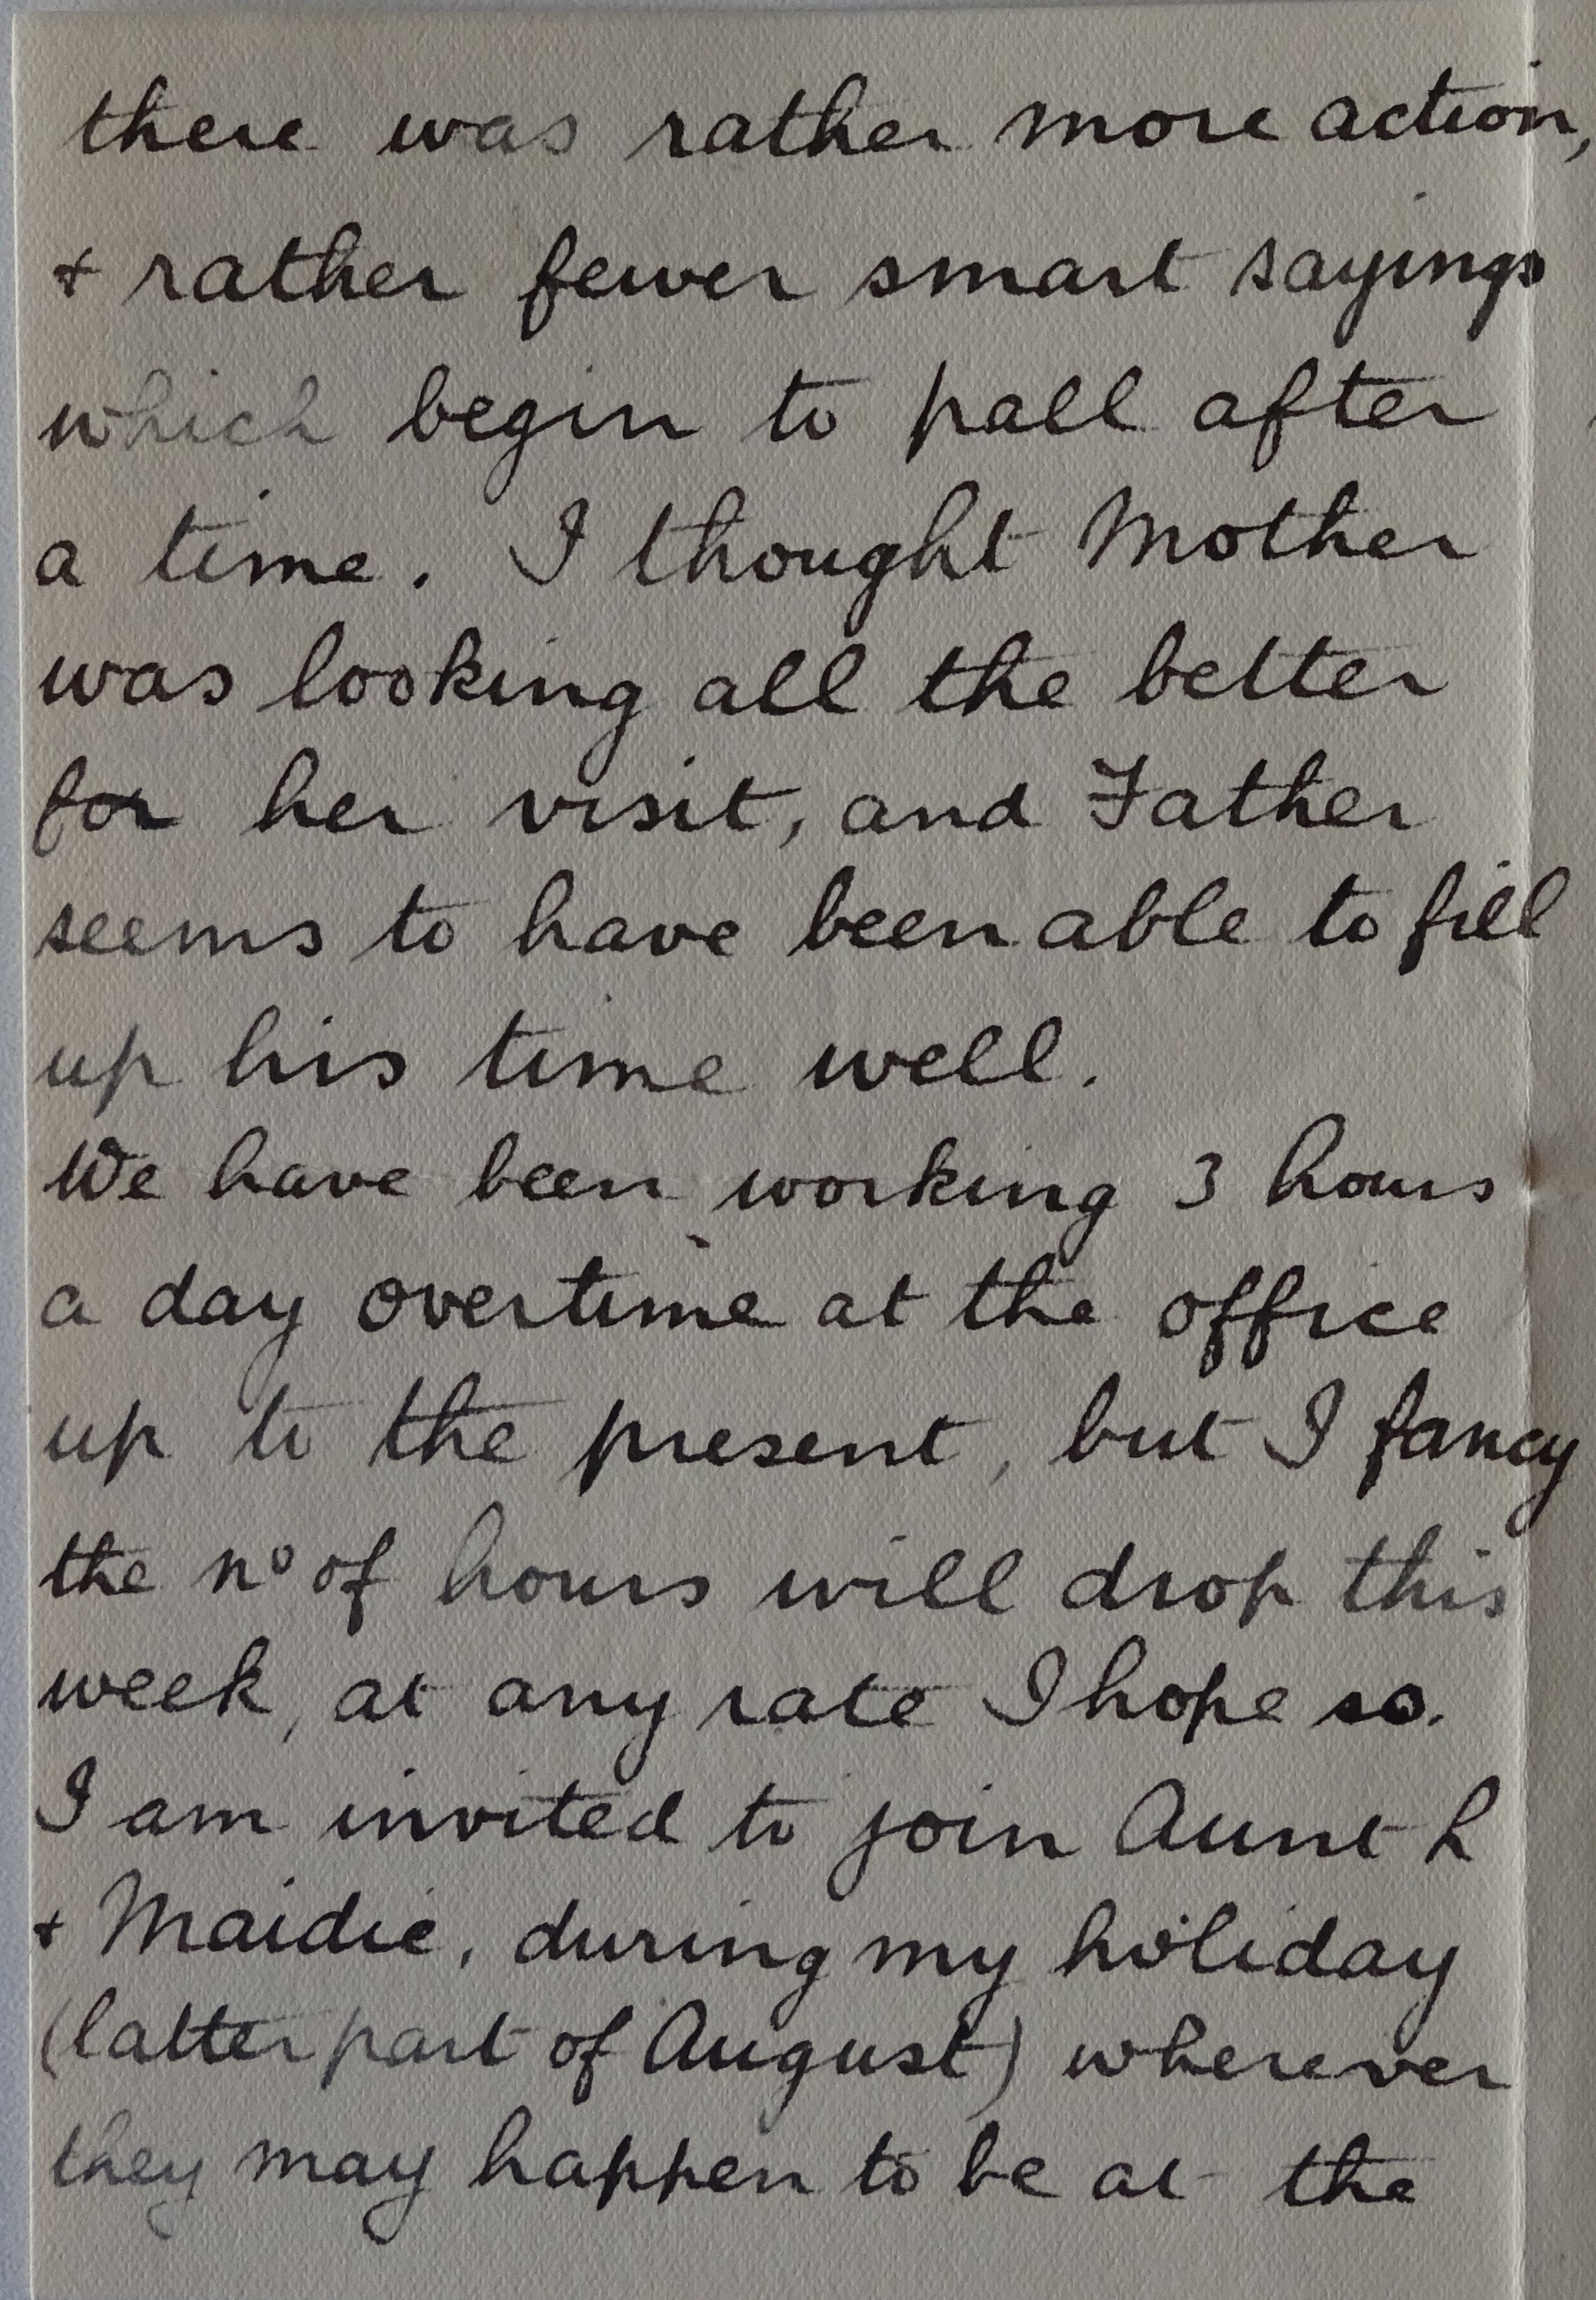 there was rather more action,
+ rather fewer smart sayings
which begin to pall after
a time. I thought Mother
was looking all the better
for her visit, and Father
seems to have been able to fill
up his time well.
We have been working 3 hours
a day overtime at the office
up to the present, but I fancy
the nº of hours will drop this
week, at any rate I hope so.
I am invited to join Aunt L
+ Maidie, during my holiday
(latter part of August) wherever
they may happen to be at the